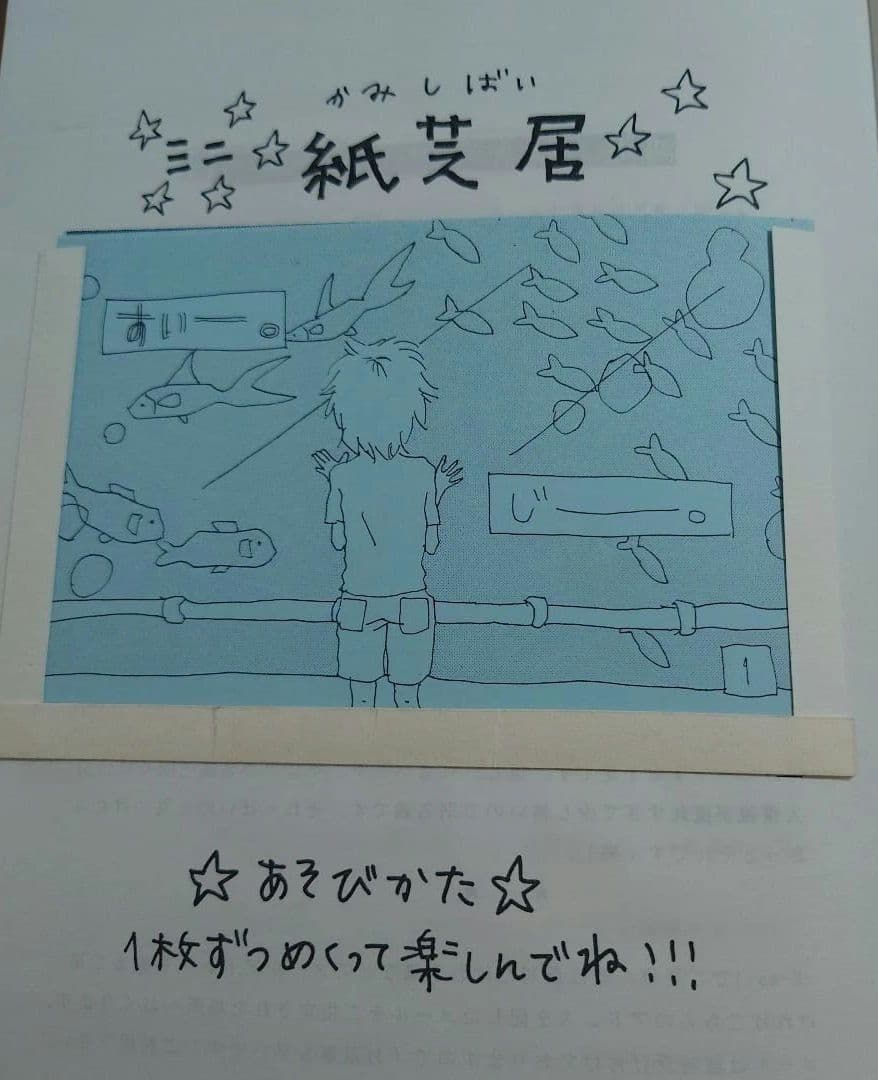 かみしばい
ミニ紙芝居
すいー。
じー。
1
☆あそびかた☆
1枚ずつめくって楽しんでね!!!